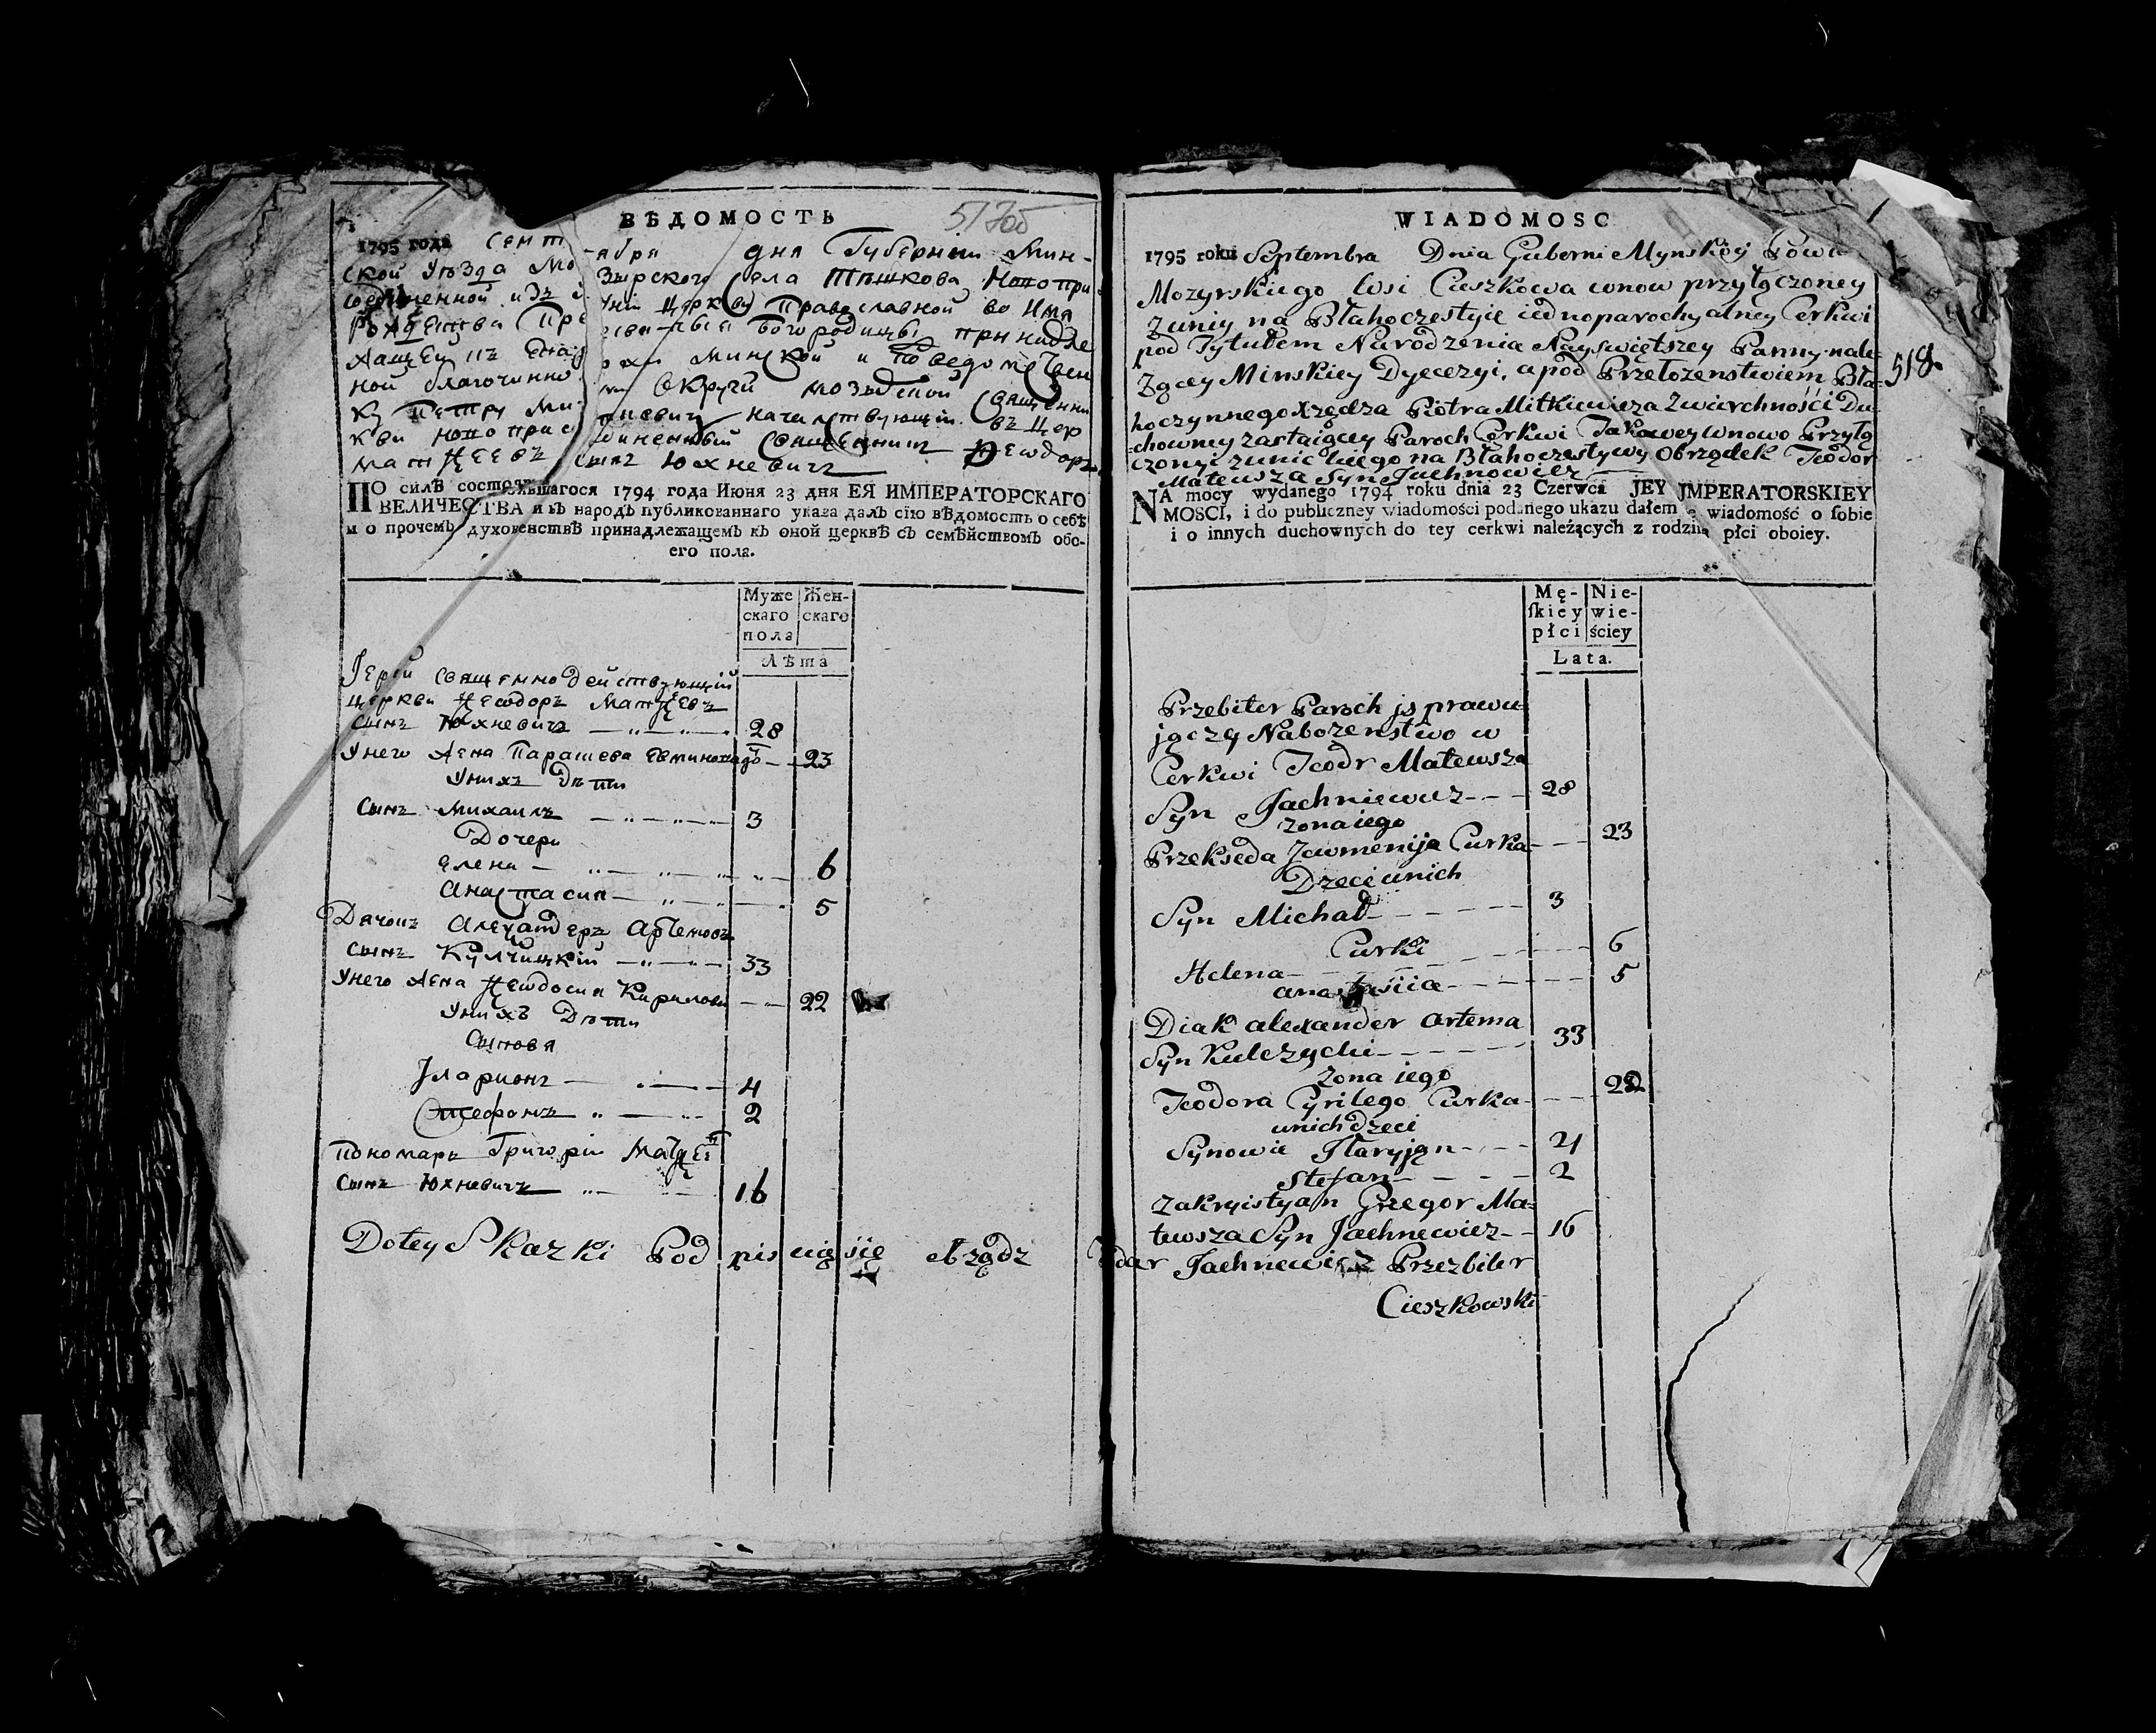 ВѢДОМОСТЬ
1795 года Сентября дня Губернiи Мин-
ской Уѣзда Мозырского Села Тѣшкова Ново при
соединенной изъ Унiи Церкви Православной во имя
Рождества Пре Богородицы принадле
жащей Минской и
ной благочинно Округи Мозырской Священни
ку Петру начальствующiй въ цер
кви ново присоединенный Священникъ Ѳеѡдоръ
Матѳеевъ Сынъ Юхневичъ
ПО силѣ состоявшагося 1794 года Июня 23 дня ЕЯ ИМПЕРАТОРСКАГО
ВЕЛИЧЕСТВА и въ народѣ публикованнаго указа далѣ сiю вѣдомость о себѣ
и о прочемъ духовенствѣ принадлежащемъ къ оной церквѣ съ семѣйствомъ обо-
его пола.
Муже Жен-
скаго скаго
пола
Лѣта
Iерей Священнодействующiй
церкви Ѳеѡдоръ Матѳеевъ
Сынъ Юхневичъ 28
Унего Жена Парашева 23
Унихъ Дѣти
Сынъ Михаилъ 3
Дочери
Елена 6
Анастасия 5
Дячокъ Алеѯандеръ Артемовъ
Сынъ Кулчицкiй 33
Унего Жена Ѳеѡдосия Кирилова 22
Унихъ Дѣти
Сынова
Iларионъ 4
Стефанъ 2
Пономарь Григорiй Матѳеевъ
Сынъ Юхневичъ 16
Dotey Skazki Podpisuię się Xbządz
51705
WIADOMOSC
1795 roku Septembra Dnia Guberni Mynskiey Powia
Mozyrskiego Wsi Cieszkowa wnow przyłączoney
zuniy na Błahoczestyie iednoparochyalney Cerkwi
pod Tytułem Narodzenia Nayswiętszey Panny nale-
żącey Minskiey Dyecezyi, a pod Przełożenstwiem Bła-
hoczynnego Xzędza Piotra Mitkiewicza Zwierchności Du-
chowney zastaiącey Paroch Cerkwi Takowey wnowo Przyłą
czonyi zunickiego na Błahoczestywy Obrządek Teodor
Mateusza Syn Jachnowicz
518
NA mocy wydanego 1794 roku dnia 23 Czerwca JEY JMPERATORSKIEY
MOSCI, i do publiczney wiadomości podanego ukazu dałem tę wiadomość o sobie
i o innych duchownych do tey cerkwi należących z rodziną płci oboiey.
Mę- Nie-
skiey wie-
płci ściey
Lata.
Przebiter Paroch js prawu-
jączy Nabozenstwo w
Cerkwi Teodr Matewsza
Syn Jachniewicz 28
zona iego
Przekseda Jewmenija Curka 23
Dzeci unich
Syn Michał 3
Curki 6
Helena 5
anastasiia
Diak alexander Artema
Syn Kulczycki 33
zona iego 22
Teodora Cyrilego Curka
unich dzeci
Synowie Jlaryjąn 4
Stefan 2
Zakryistyan Gregor Ma-
tewsza Syn Jachnewicz 16
Todar Jachnewicz Przezbiter
Cieszkowski